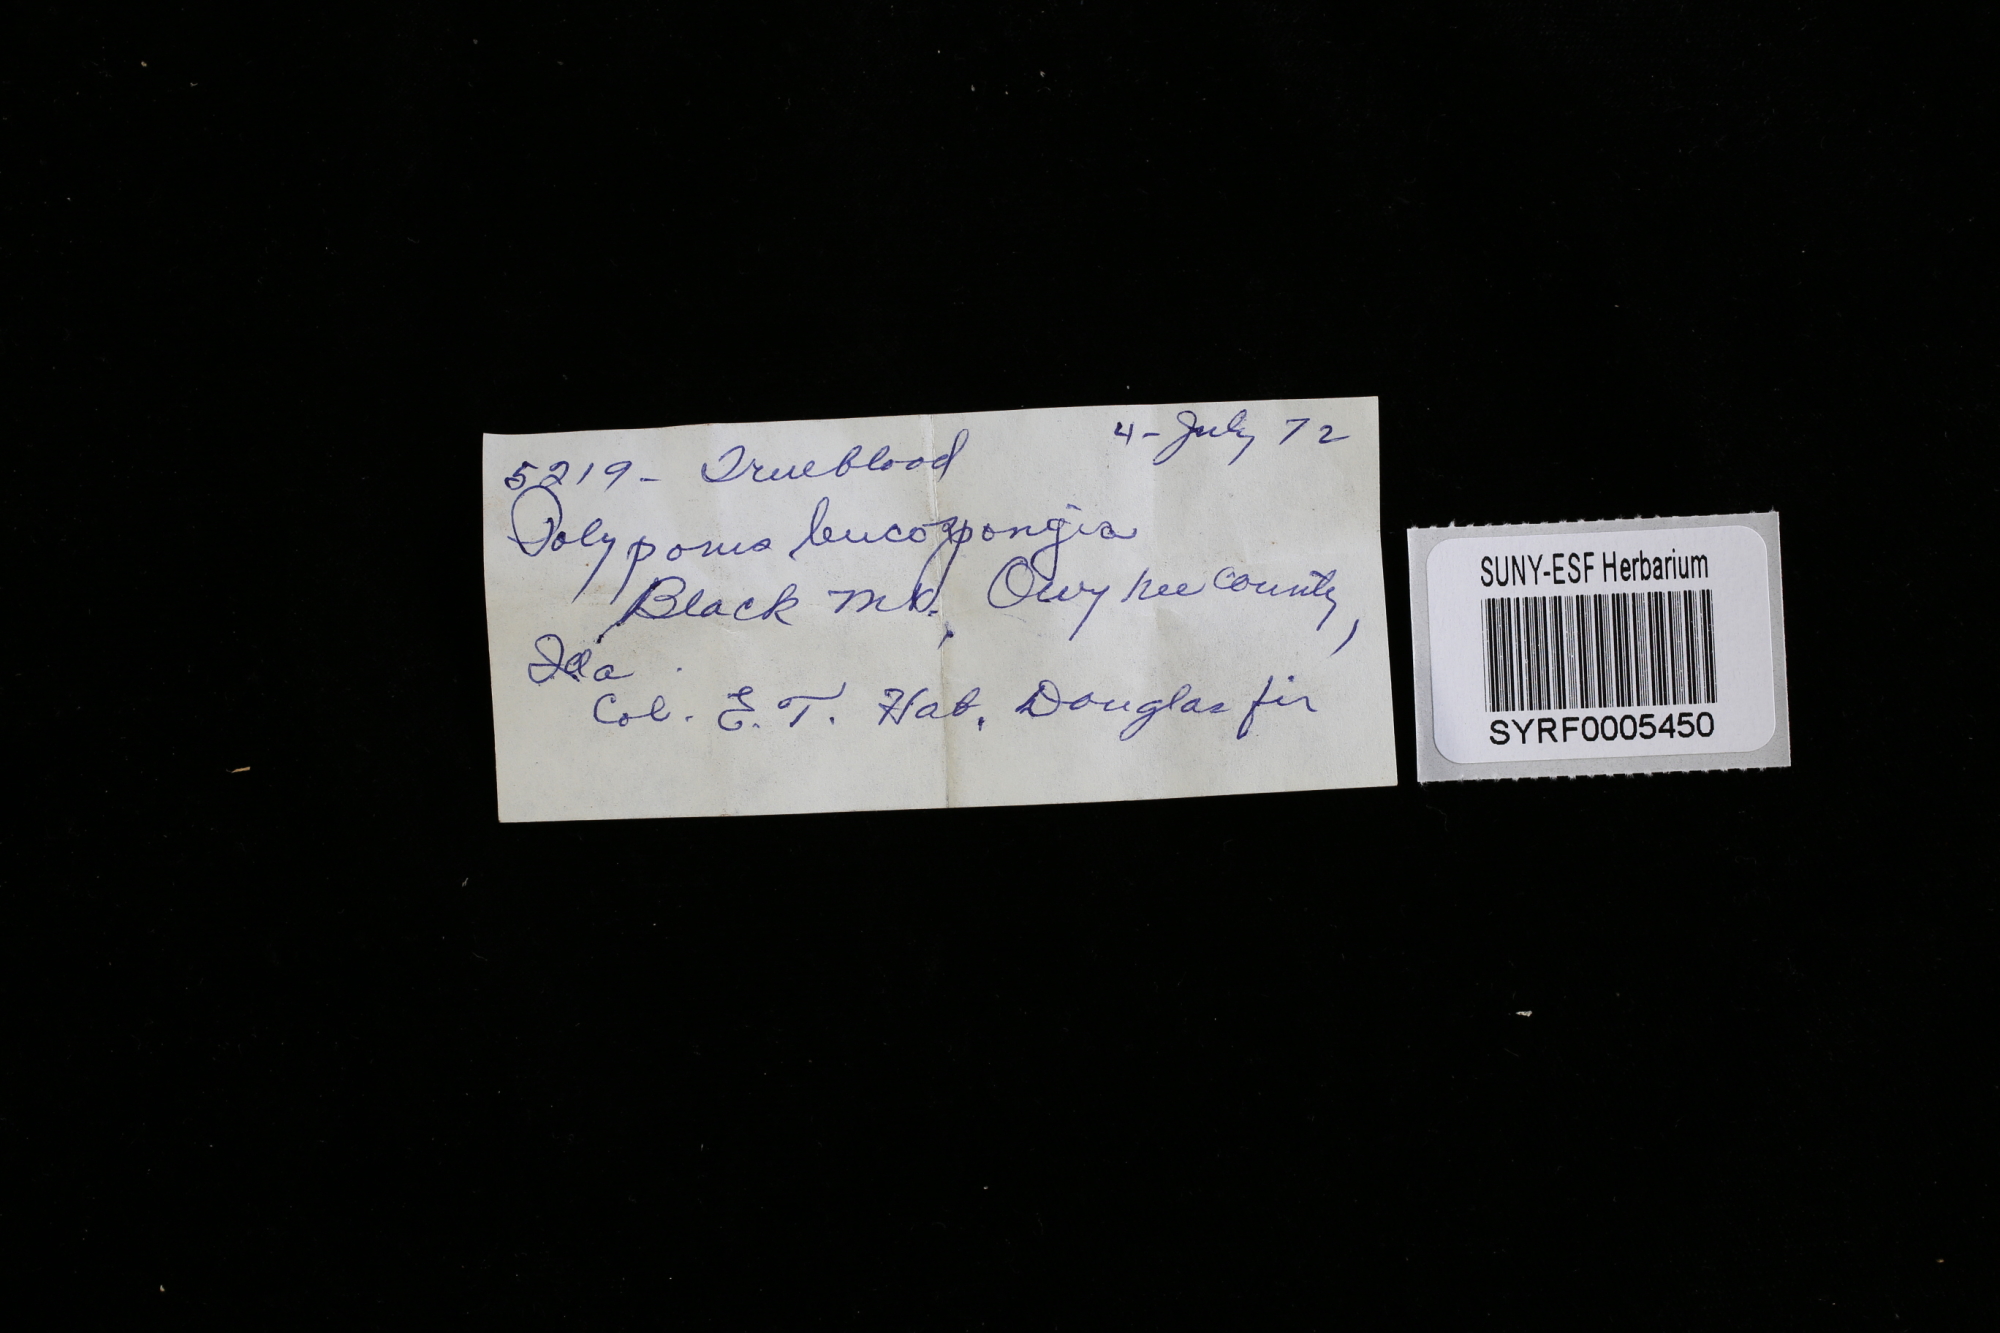 5219 - Trueblood 4 - July 72
Polyporus leucospongia
Black Mt., Owyhee County,
Ida.
Col. E.T. Hab. Douglas fir
SUNY-ESF Herbarium
SYRF0005450